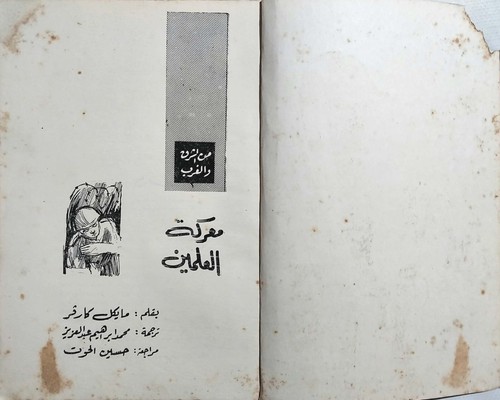 من الشرق
والغرب
معركة
العلمين
بقلم : مايكل كارفر
ترجمة : محمد ابراهيم عبدالعزيز
مراجعة : حسين الحوت